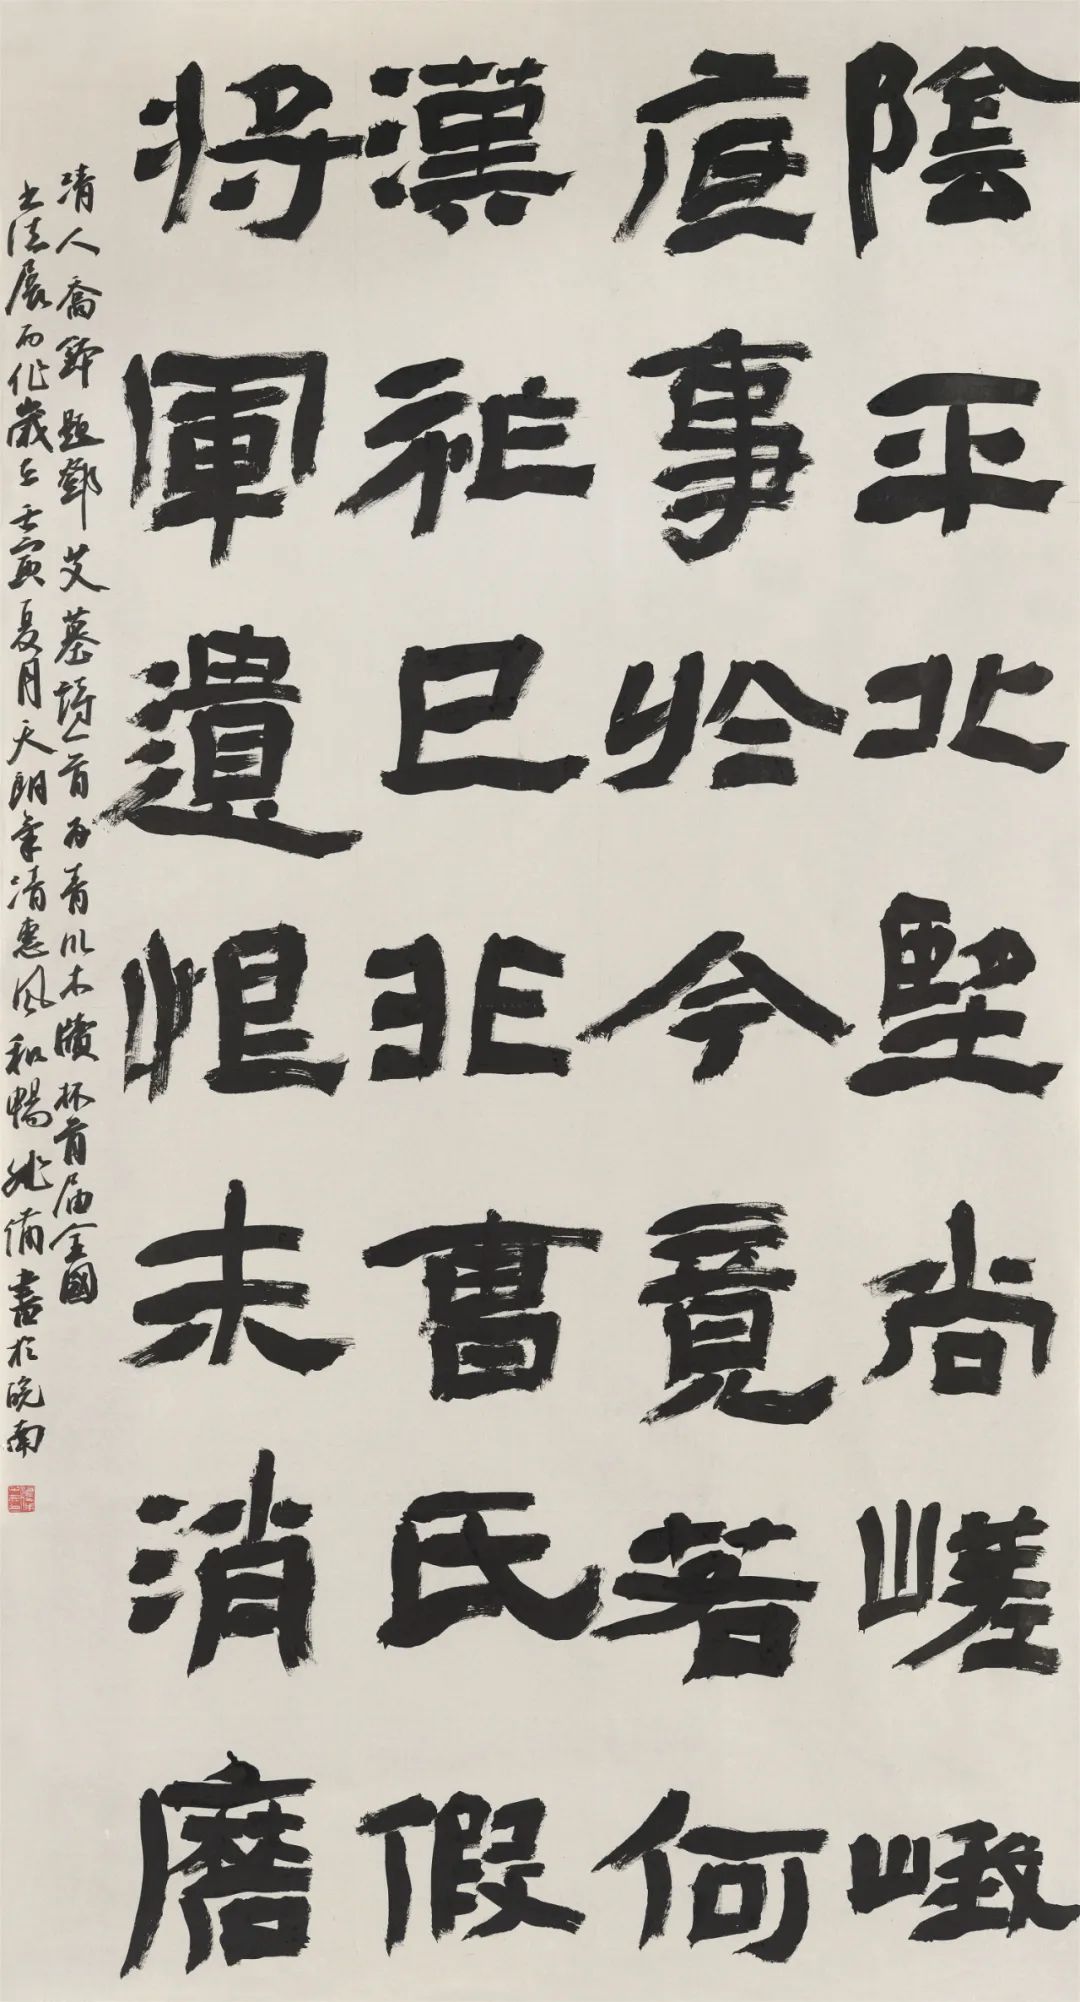 陰平北望尚嵯峨
底事於今竟若何
漢祚已非曹氏假
將軍遺恨未消磨
清人喬鉢題鄧艾墓詩一首為青川木牘杯首届全國
书法展而作歲在壬寅夏月天朗氣清惠風和暢書於皖南